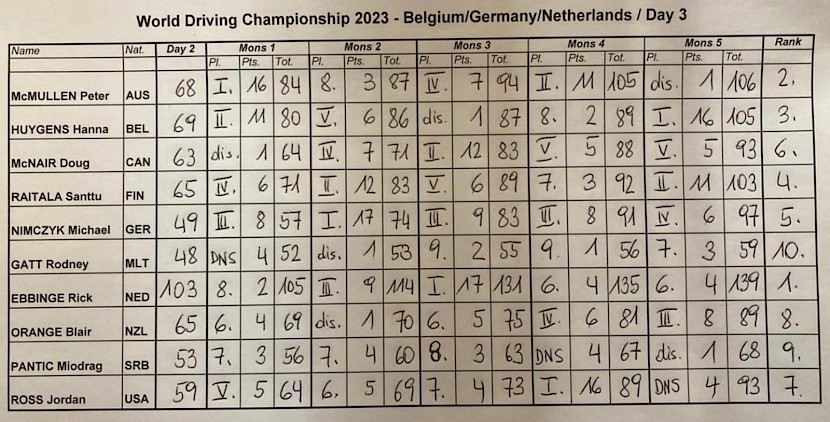 World Driving Championship 2023 - Belgium/Germany/Netherlands / Day 3
Name Nat. Day 2 Mons 1 Mons 2 Mons 3 Mons 4 Mons 5 Rank
Pl. Pts. Tot. Pl. Pts. Tot. Pl. Pts. Tot. Pl. Pts. Tot. Pl. Pts. Tot.
McMULLEN Peter AUS 68 I. 16 84 8. 3 87 IV. 7 94 II. 11 105 dis. 1 106 2.
HUYGENS Hanna BEL 69 II. 11 80 V. 6 86 dis. 1 87 8. 2 89 I. 16 105 3.
McNAIR Doug CAN 63 dis. 1 64 IV. 7 71 II. 12 83 V. 5 88 V. 5 93 6.
RAITALA Santtu FIN 65 IV. 6 71 II. 12 83 V. 6 89 7. 3 92 II. 11 103 4.
NIMCZYK Michael GER 49 III. 8 57 I. 17 74 III. 9 83 III. 8 91 IV. 6 97 5.
GATT Rodney MLT 48 DNS 4 52 dis. 1 53 9. 2 55 9. 1 56 7. 3 59 10.
EBBINGE Rick NED 103 8. 2 105 III. 9 114 I. 17 131 6. 4 135 6. 4 139 1.
ORANGE Blair NZL 65 6. 4 69 dis. 1 70 6. 5 75 IV. 6 81 III. 8 89 8.
PANTIC Miodrag SRB 53 7. 3 56 7. 4 60 8. 3 63 DNS 4 67 dis. 1 68 9.
ROSS Jordan USA 59 V. 5 64 6. 5 69 7. 4 73 I. 16 89 DNS 4 93 7.